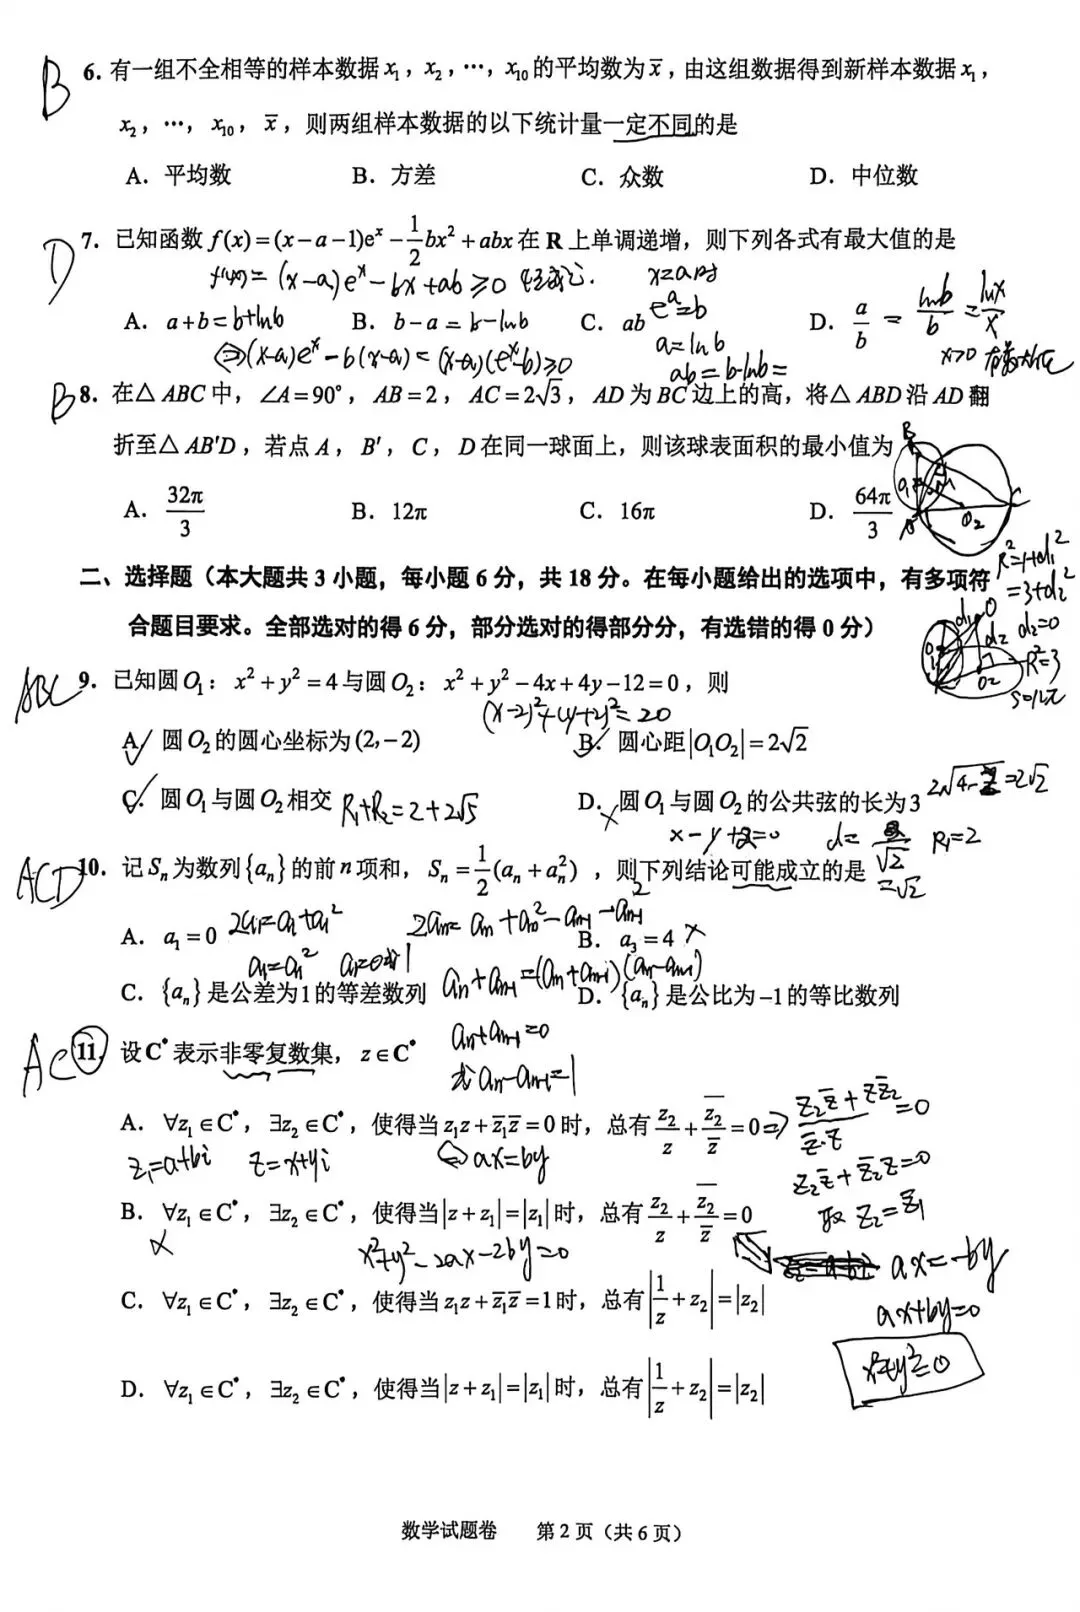 B 6. 有一组不全相等的样本数据 x₁，x₂，…，x₁₀ 的平均数为 x̄，由这组数据得到新样本数据 x₁，
x₂，…，x₁₀，x̄，则两组样本数据的以下统计量一定不同的是
A. 平均数 B. 方差 C. 众数 D. 中位数
D 7. 已知函数 f(x)=(x-a-1)eˣ-\frac{1}{2}bx²+abx 在 R 上单调递增，则下列各式有最大值的是
f'(x)=(x-a)eˣ-bx+ab≥0 x=a时
A. a+b=b+lnb B. b-a=b-lnb C. ab eᵃ=b D. \frac{a}{b}=\frac{lnb}{b}=\frac{lnx}{x}
⇔(x-a)eˣ-b(x-a)=(x-a)(eˣ-b)≥0 a=lnb x>0 有最大值
ab=b·lnb=
B 8. 在△ABC 中，∠A=90°，AB=2，AC=2√3，AD 为 BC 边上的高，将△ABD 沿 AD 翻
折至△AB'D，若点 A，B'，C，D 在同一球面上，则该球表面积的最小值为
A. \frac{32π}{3} B. 12π C. 16π D. \frac{64π}{3}
B
C
O₂
R²=1+d₁²
=3+d₂²
d₂=0
R²=3
S=12π
二、选择题（本大题共 3 小题，每小题 6 分，共 18 分。在每小题给出的选项中，有多项符
合题目要求。全部选对的得 6 分，部分选对的得部分分，有选错的得 0 分）
ABC 9. 已知圆 O₁：x²+y²=4 与圆 O₂：x²+y²-4x+4y-12=0，则
(x-2)²+(y+2)²=20
A. 圆 O₂ 的圆心坐标为 (2,-2) B. 圆心距 |O₁O₂|=2√2
C. 圆 O₁ 与圆 O₂ 相交 R₁+R₂=2+2√5 D. 圆 O₁ 与圆 O₂ 的公共弦的长为 3 2√(4-2)=2√2
x-y+2=0 d=\frac{2}{√2}=√2 R₁=2
ACD 10. 记 Sₙ 为数列{aₙ}的前 n 项和，Sₙ=\frac{1}{2}(aₙ+aₙ²)，则下列结论可能成立的是
A. a₁=0 2a₁=a₁+a₁² 2aₙ=aₙ+aₙ²-aₙ₋₁-aₙ₋₁² B. a₃=4 ×
a₁=a₁² a₁=0或1 aₙ+aₙ₋₁=(aₙ+aₙ₋₁)(aₙ-aₙ₋₁)
C. {aₙ}是公差为 1 的等差数列 D. {aₙ}是公比为 -1 的等比数列
aₙ+aₙ₋₁=0
或 aₙ-aₙ₋₁=1
AC 11. 设 C* 表示非零复数集，z∈C*
A. ∀z₁∈C*，∃z₂∈C*，使得当 z₁z+z̄₁z̄=0 时，总有 \frac{z₂}{z}+\frac{z̄₂}{z̄}=0 ⇒ \frac{z₂z̄+zz̄₂}{z̄·z}=0
z₁=a+bi z=x+yi ⇔ax=by
z₂z̄+z̄₂z=0
取 z₂=z̄₁
B. ∀z₁∈C*，∃z₂∈C*，使得当 |z+z₁|=|z₁| 时，总有 \frac{z₂}{z}+\frac{z̄₂}{z̄}=0
× x²+y²-2ax-2by=0
ax=-by
C. ∀z₁∈C*，∃z₂∈C*，使得当 z₁z+z̄₁z̄=1 时，总有 |\frac{1}{z}+z₂|=|z₂|
ax+by=0
x²+y²=0
D. ∀z₁∈C*，∃z₂∈C*，使得当 |z+z₁|=|z₁| 时，总有 |\frac{1}{z}+z₂|=|z₂|
数学试题卷 第 2 页（共 6 页）